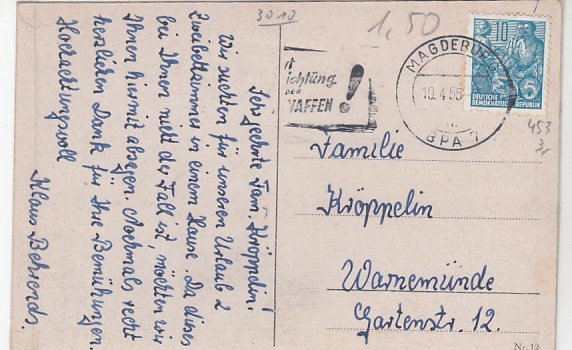 3010
1,50
Sehr geehrte Fam. Kröppelin!
Wir suchten für unseren Urlaub 2
Zweibettzimmer in einem Hause. Da dieses
bei Ihnen nicht der Fall ist, möchten wir
Ihnen hiermit absagen. Nochmals recht
herzlichen Dank für Ihre Bemühungen.
Hochachtungsvoll
Klaus Behrends.
ichtung
DER
WAFFEN!
MAGDEBURG
10.4.55
BPA 1
10
5
DEUTSCHE
DEMOKRATISCHE REPUBLIK
453
Familie
Kröppelin
Warnemünde
Gartenstr. 12.
Nr. 12